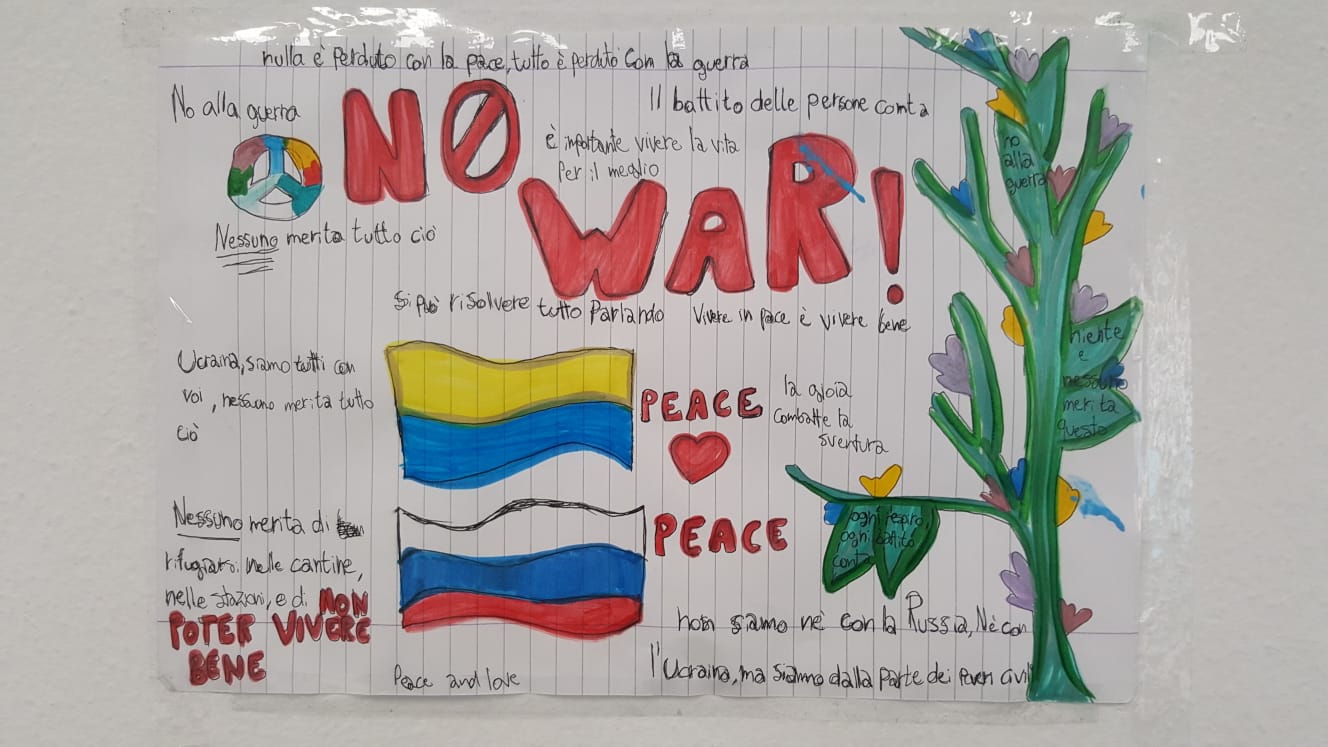 nulla è perduto con la pace, tutto è perduto con la guerra
No alla guerra
NO
Il battito delle persone conta
è importante vivere la vita
per il meglio
WAR!
Nessuno merita tutto ciò
Si può risolvere tutto Parlando
Vivere in pace è vivere bene
Ucraina, siamo tutti con
voi, nessuno merita tutto
ciò
PEACE
PEACE
la gioia
combatte la
sventura
Nessuno merita di
rifugiarsi nelle cantine,
nelle stazioni, e di NON
POTER VIVERE
BENE
Peace and love
non siamo nè con la Russia, Nè con
l'Ucraina, ma siamo dalla parte dei poveri civili
no
alla
guerra
niente
e
nessuno
merita
questo
ogni respiro,
ogni battito
conta